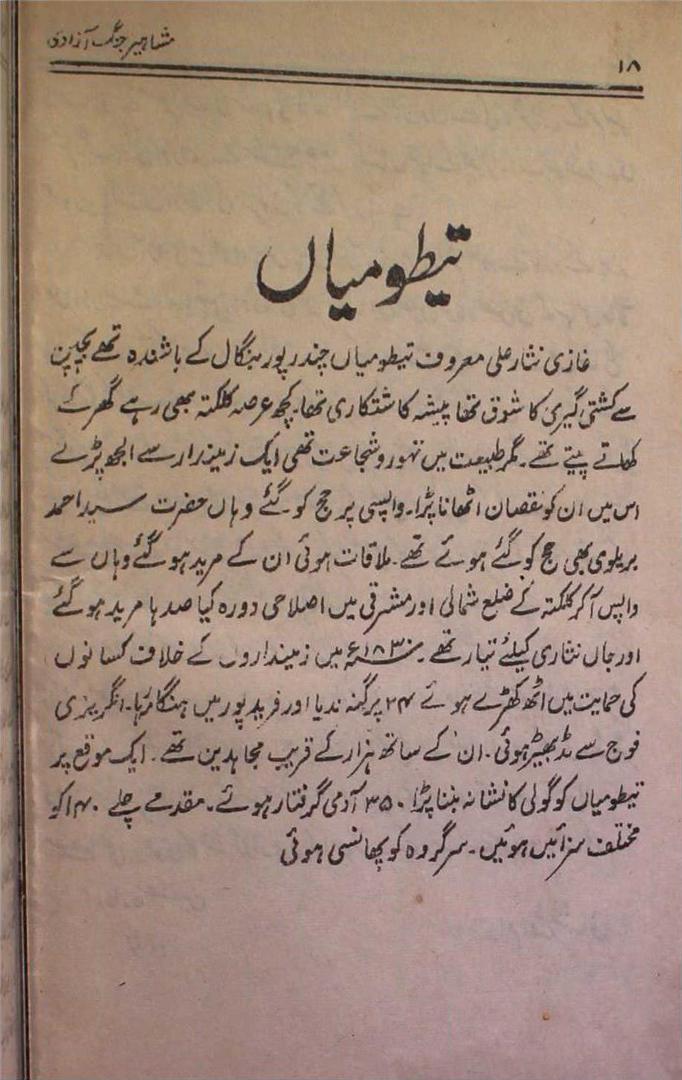 مشاہیر جنگ آزادی
۱۸
تیطو میاں
غازی نثار علی معروف تیطو میاں چندر پور بنگال کے باشندہ تھے بچپن
سے کشتی گیری کا شوق تھا پیشہ کاشتکاری تھا۔ کچھ عرصہ کلکتہ بھی رہے گھر کے
کھاتے پیتے تھے۔ مگر طبیعت میں تہور و شجاعت تھی ایک زمیندار سے الجھ پڑے
اس میں ان کو نقصان اٹھانا پڑا۔ واپسی پر حج کو گئے وہاں حضرت سید احمد
بریلوی بھی حج کو گئے ہوئے تھے۔ ملاقات ہوئی ان کے مرید ہو گئے وہاں سے
واپس آ کر کلکتہ کے ضلع شمالی اور مشرقی میں اصلاحی دورہ کیا صدہا مرید ہو گئے
اور جاں نثاری کیلئے تیار تھے۔ ۱۸۳۰ء میں زمینداروں کے خلاف کسانوں
کی حمایت میں اٹھ کھڑے ہوئے ۲۴ پرگنہ ندیا اور فرید پور میں ہنگامہ رہا۔ انگریزی
فوج سے مڈبھیڑ ہوئی۔ ان کے ساتھ ہزار کے قریب مجاہدین تھے۔ ایک موقع پر
تیطو میاں کو گولی کا نشانہ بننا پڑا ۳۵۰ آدمی گرفتار ہوئے۔ مقدمے چلے ۱۴۰ کو
مختلف سزائیں ہوئیں۔ سرگروہ کو پھانسی ہوئی